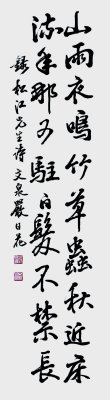 山雨夜鳴竹草蟲秋近床
流年那可駐白髮不禁長
錄松江先生詩 文泉嚴日花